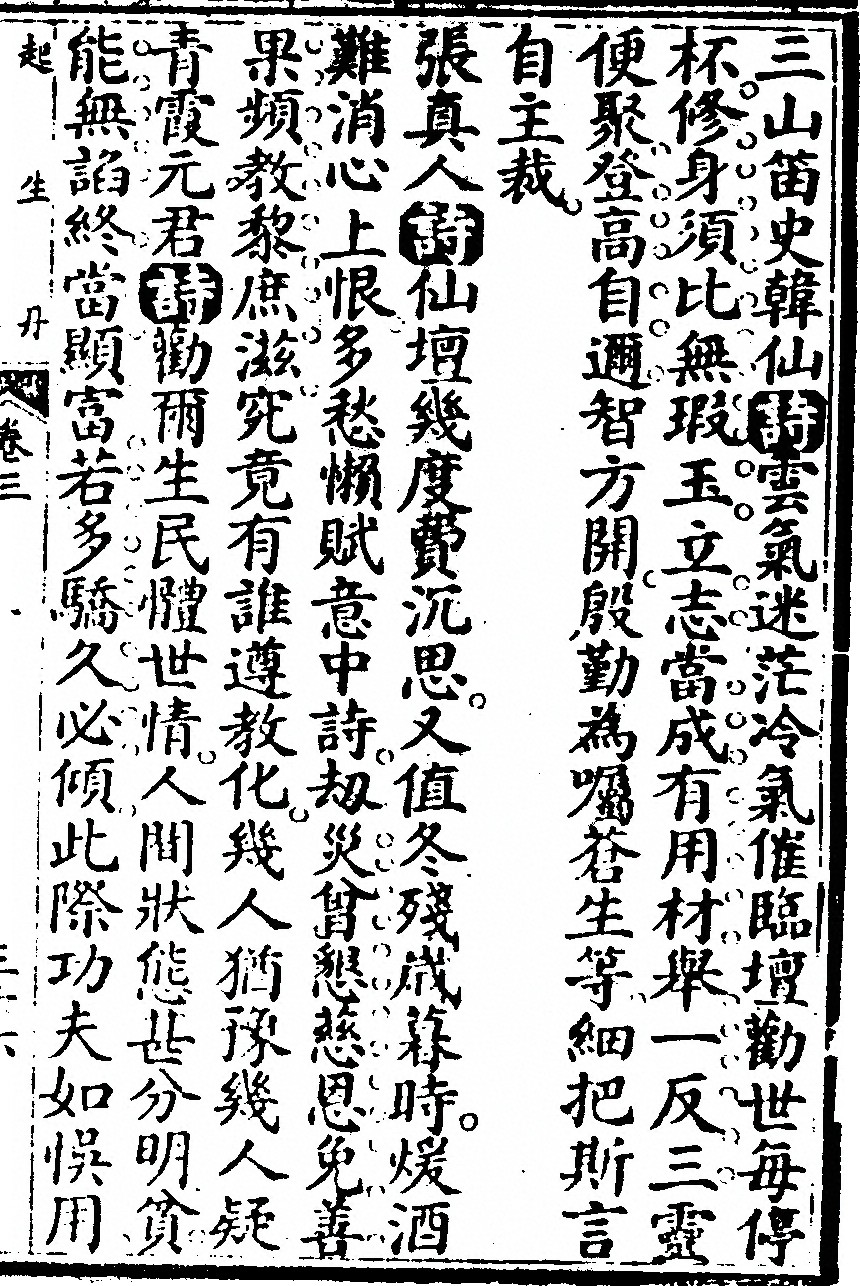 三山笛史韓仙詩雲氣迷茫冷氣催臨壇勸世每停
杯修身須比無瑕玉立志當成有用材舉一反三靈
便聚登高自邇智方開殷勤為囑蒼生等細把斯言
自主裁
張真人詩仙壇幾度費沉思又值冬殘歲暮時煖酒
難消心上恨多愁懶賦意中詩劫災曾懇慈恩免善
果頻教黎庶滋究竟有誰遵教化幾人猶豫幾人疑
青霞元君詩勸爾生民體世情人間狀態甚分明貧
能無諂終當顯富若多驕久必傾此際功夫如悞用
起生丹 卷三